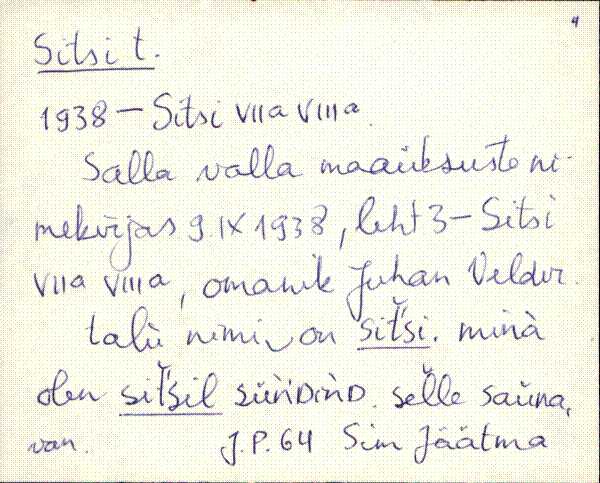 4
Sitsi t.
1938 – Sitsi VIIa VIIIa.
Salla valla maaüksuste ni-
mekirjas 9.IX 1938, leht 3 – Sitsi
VIIa VIIIa, omanik Juhan Velder.
talù nimi, on sit̆'si. minà
olen sit̆'sil süǹDiǹD. selle saùna,
van. J.P. 64 Sim Jäätma